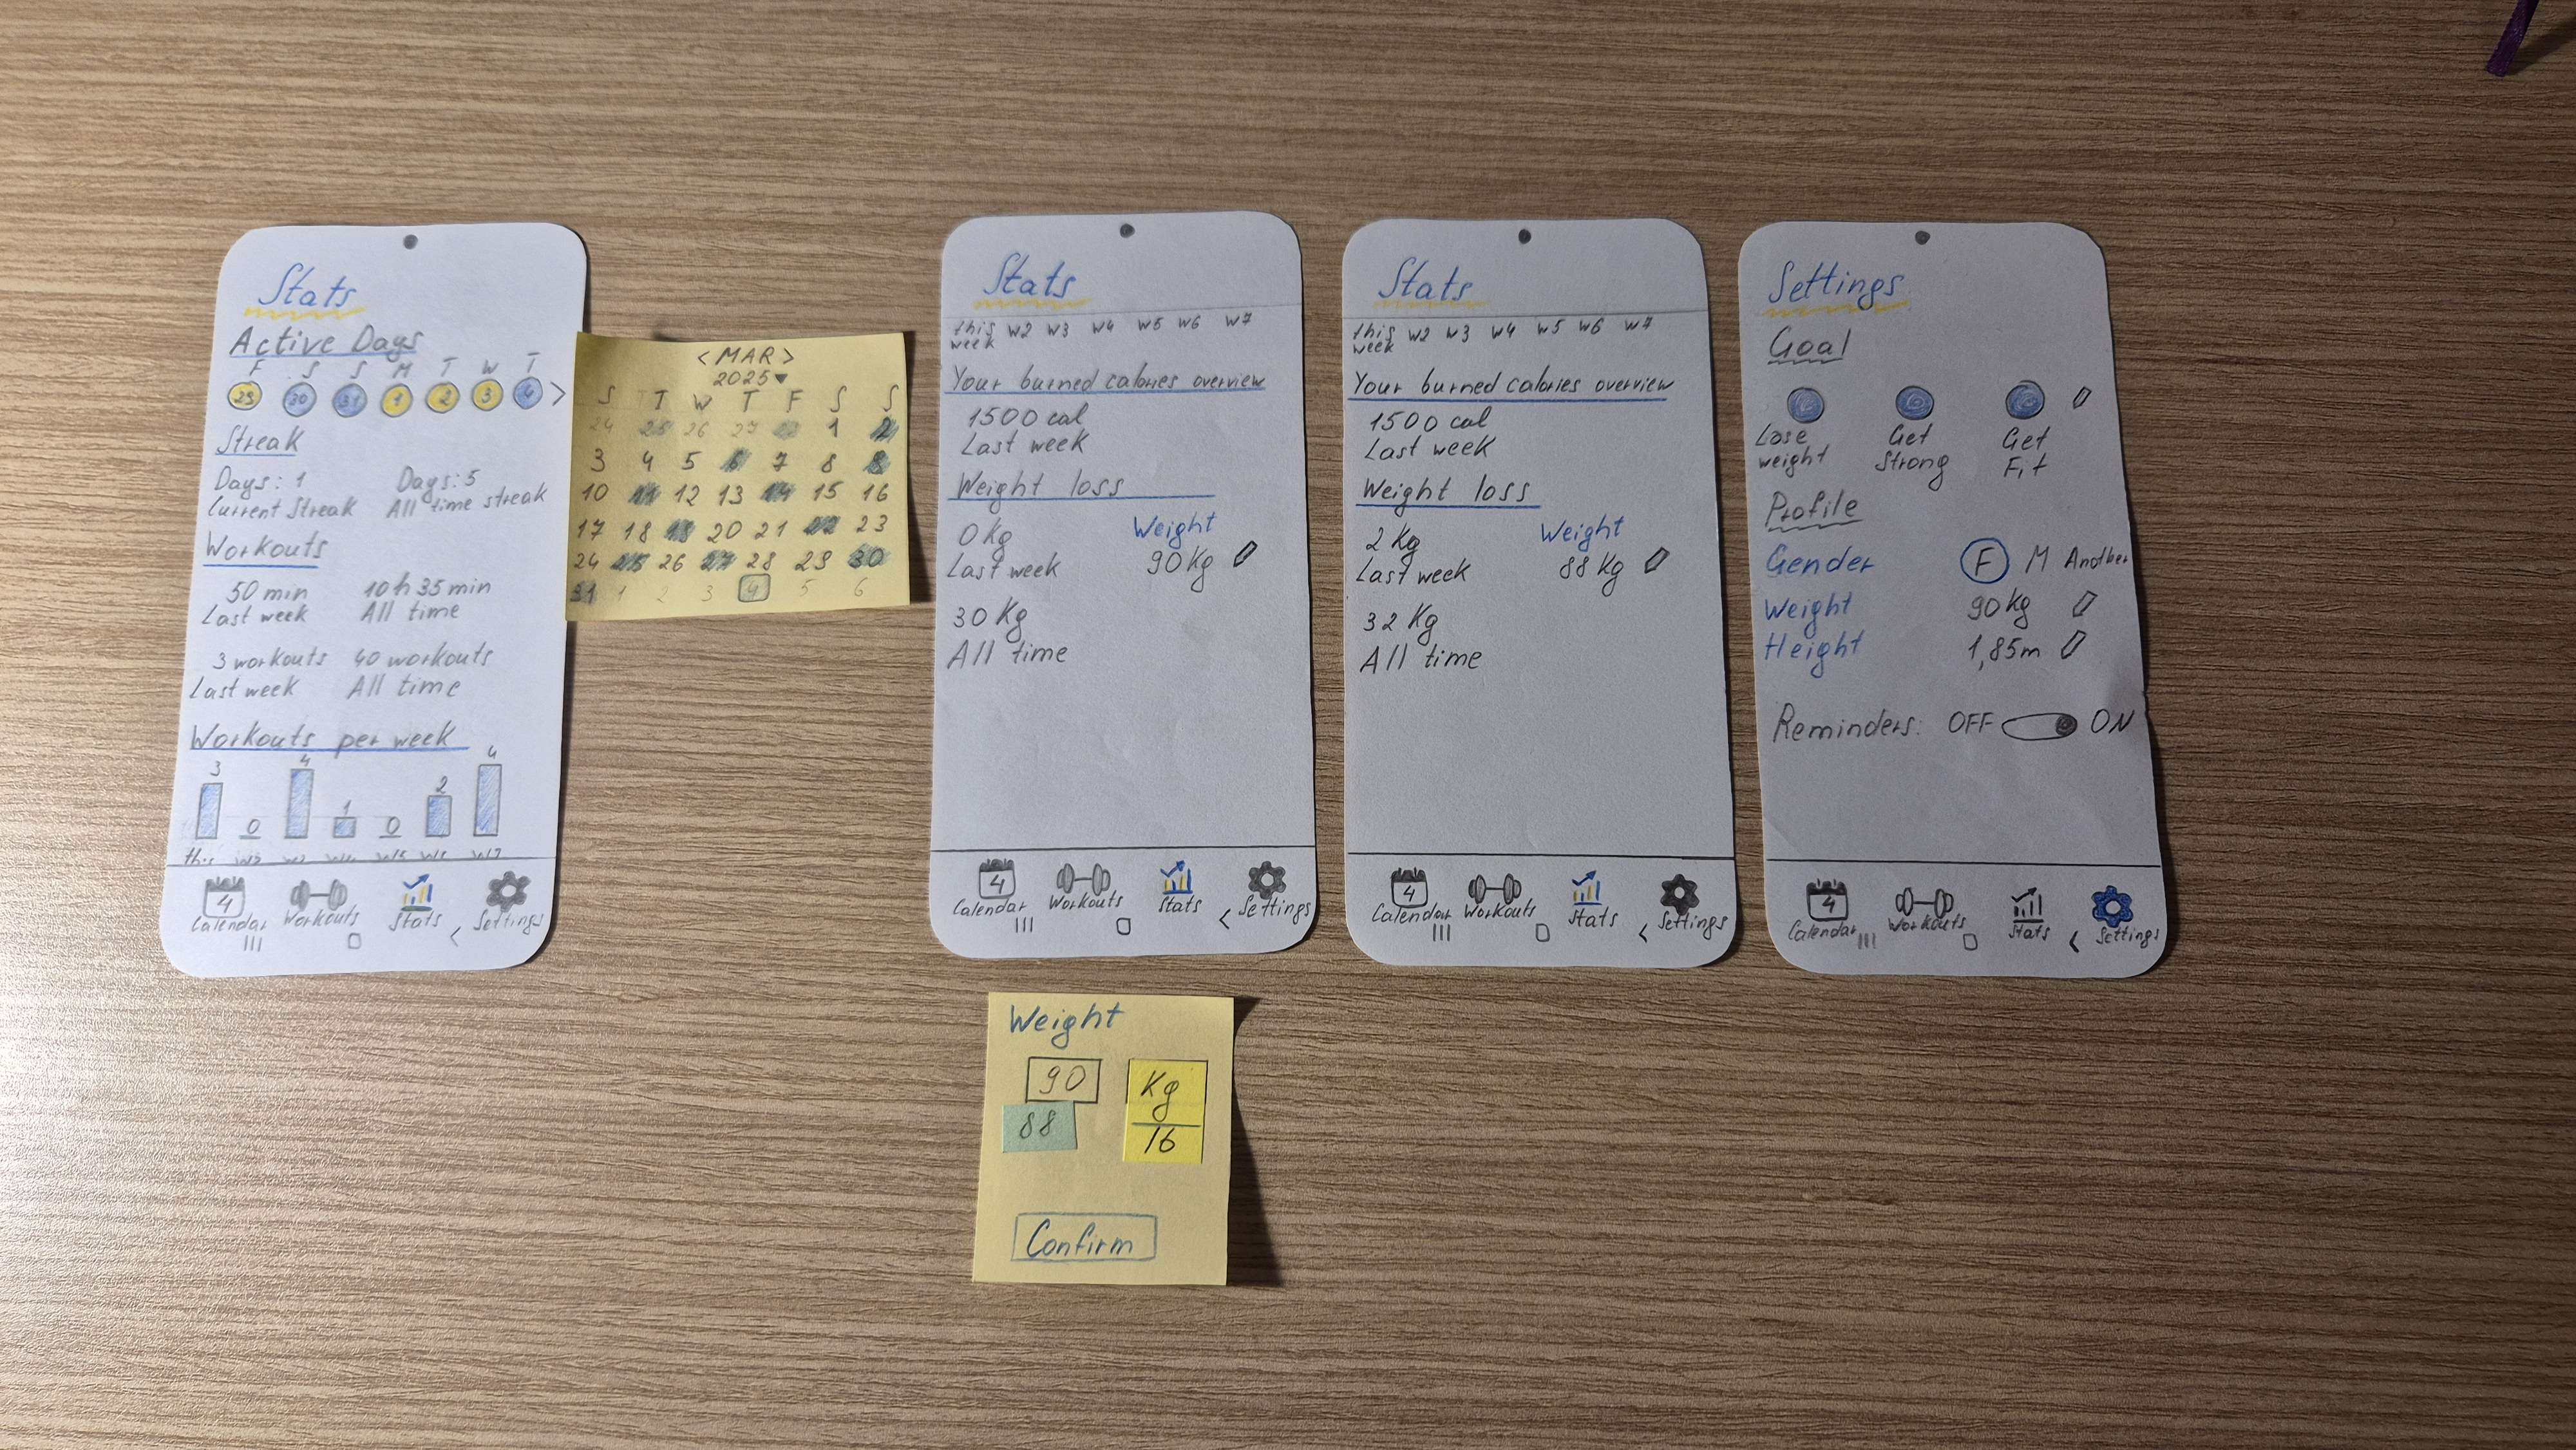 Stats
Active Days
F S S M T W T
29 30 31 1 2 3 4 >
Streak
Days: 1 Days: 5
Current Streak All time streak
Workouts
50 min 10h 35min
Last week All time
3 workouts 40 workouts
Last week All time
Workouts per week
3 0 4 1 0 2 4
this W2 W3 W4 W5 W6 W7
4
Calendar Workouts Stats Settings
< MAR >
2025
S T W T F S S
24 25 26 27 28 1 2
3 4 5 6 7 8 9
10 11 12 13 14 15 16
17 18 19 20 21 22 23
24 25 26 27 28 29 30
31 1 2 3 4 5 6
Stats
this week W2 W3 W4 W5 W6 W7
Your burned calories overview
1500 cal
Last week
Weight loss
0 Kg Weight
Last week 90 Kg
30 Kg
All time
4
Calendar Workouts Stats Settings
Stats
this week W2 W3 W4 W5 W6 W7
Your burned calories overview
1500 cal
Last week
Weight loss
2 Kg Weight
Last week 88 Kg
32 Kg
All time
4
Calendar Workouts Stats Settings
Settings
Goal
Lose weight
Get Strong
Get Fit
Profile
Gender F M Another
Weight 90 kg
Height 1,85m
Reminders: OFF ON
4
Calendar Workouts Stats Settings
Weight
90 Kg
88 16
Confirm